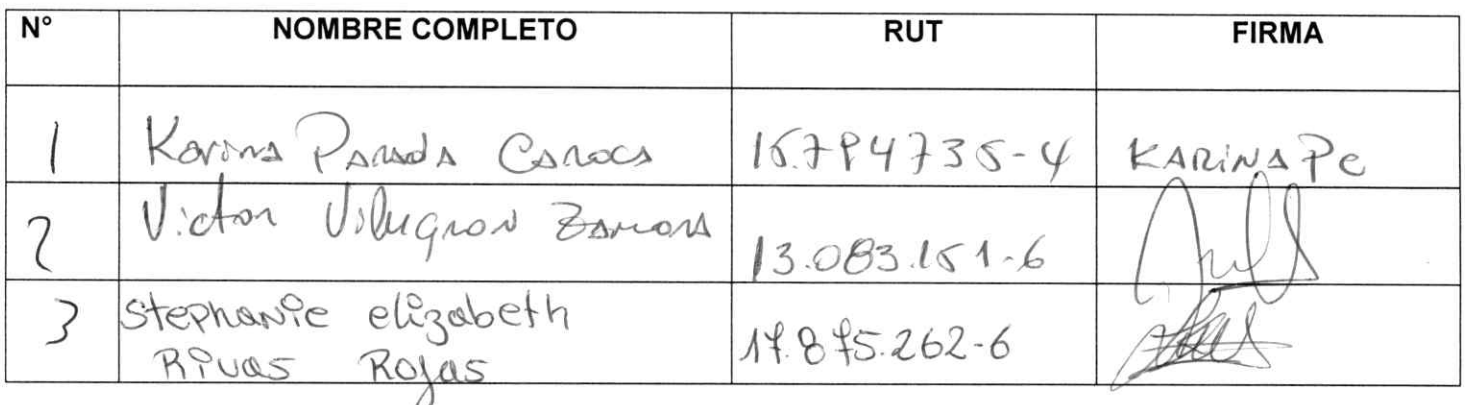 N° NOMBRE COMPLETO RUT FIRMA
1 Karina Parada Caroca 15.794735-4 KARINA Pc
2 Victor Vilugron Zamora 13.083.151-6
3 Stephanie elizabeth 17.875.262-6
Rivas Rojas